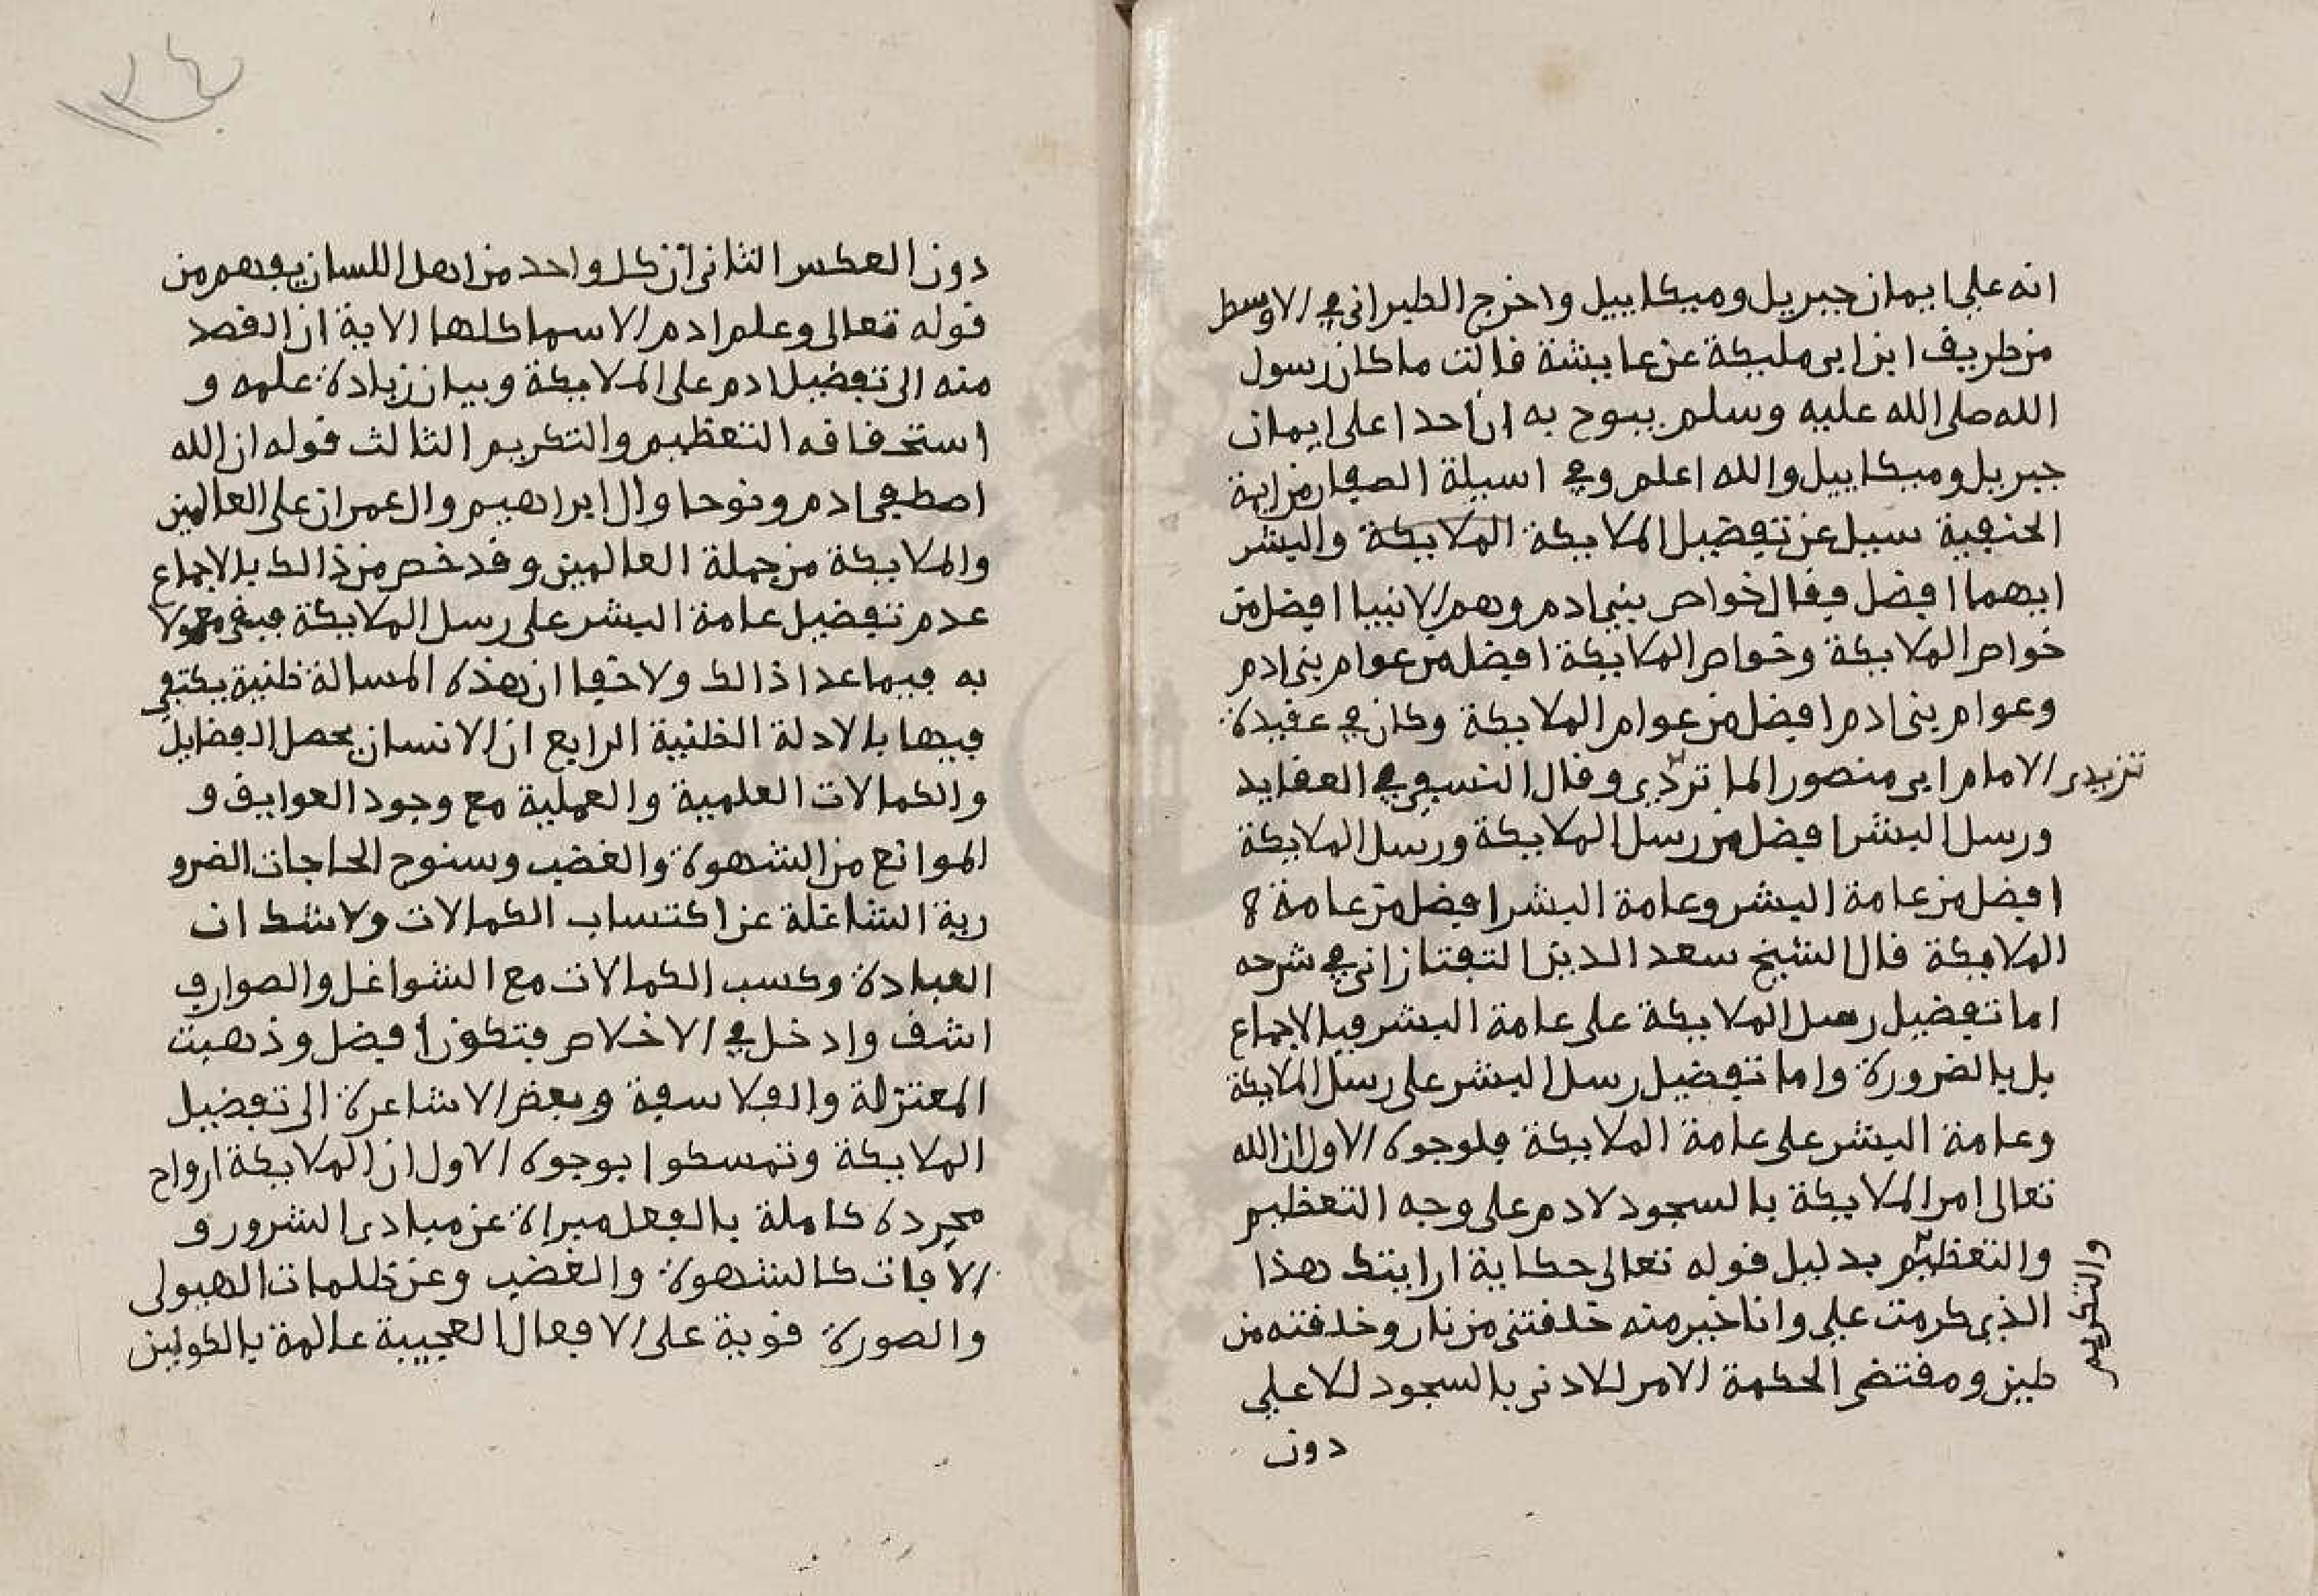 انه على ايمان جبريل وميكاييل واخرج الطبراني في الاوسط
من طريق ابن ابي مليكة عن عايشة قالت ما كان رسول
الله صلى الله عليه وسلم يبوح به ان احدا على ايمان
جبريل وميكاييل والله اعلم وفي اسيلة الصفار من ايمة
الحنفية سيل عن تفضيل الملايكة الملايكة والبشر
ايهما افضل فقال خواص بني ادم وهم الانبيا افضل من
خواص الملايكة وخواص الملايكة افضل من عوام بني ادم
وعوام بني ادم افضل من عوام الملايكة وكان في عقيدة
الامام ابي منصور الما تردي وقال النسفي في العقايد
تريدي
ورسل البشر افضل من رسل الملايكة ورسل الملايكة
افضل من عامة البشر وعامة البشر افضل من عامة
الملايكة قال الشيخ سعد الدين التفتازاني في شرحه
اما تفضيل رسل الملايكة على عامة البشر فبالاجماع
بل بالضرورة واما تفضيل رسل البشر على رسل الملايكة
وعامة البشر على عامة الملايكة فلوجوه الاول ان الله
تعالى امر الملايكة بالسجود لادم على وجه التعظيم
والتعظيم بدليل قوله تعالى حكاية ارايتك هذا
والتكريم
الذي كرمت علي وانا خير منه خلقتني من نار وخلقته من
طين ومقتضى الحكمة الامر للادنى بالسجود للاعلى
دون
١٤
دون العكس الثاني ان كل واحد من اهل اللسان يفهم من
قوله تعالى وعلم ادم الاسما كلها الاية ان القصد
منه الى تفضيل ادم على الملايكة وبيان زيادة علمه و
استحقاقه التعظيم والتكريم الثالث قوله ان الله
اصطفى ادم ونوحا وال ابراهيم وال عمران على العالمين
والملايكة من جملة العالمين وقد خص من ذالك بالاجماع
عدم تفضيل عامة البشر على رسل الملايكة فبقي معمولا
به فيما عدا ذالك ولا خفا ان هذه المسالة ظنية يكتفى
فيها بالادلة الظنية الرابع ان الانسان يحصل الفضايل
والكمالات العلمية والعملية مع وجود العوايق و
الموانع من الشهوة والغضب وسنوح الحاجات الضرو
رية الشاغلة عن اكتساب الكمالات ولا شك ان
العبادة وكسب الكمالات مع الشواغل والصوارف
اشق وادخل في الاخلاص فتكون افضل وذهبت
المعتزلة والفلاسفة وبعض الاشاعرة الى تفضيل
الملايكة وتمسكوا بوجوه الاول ان الملايكة ارواح
مجردة كاملة بالفعل مبراة عن مبادى الشرور و
الافات كالشهوة والغضب وعن ظلمات الهيولى
والصورة قوية على الافعال العجيبة عالمة بالكواين